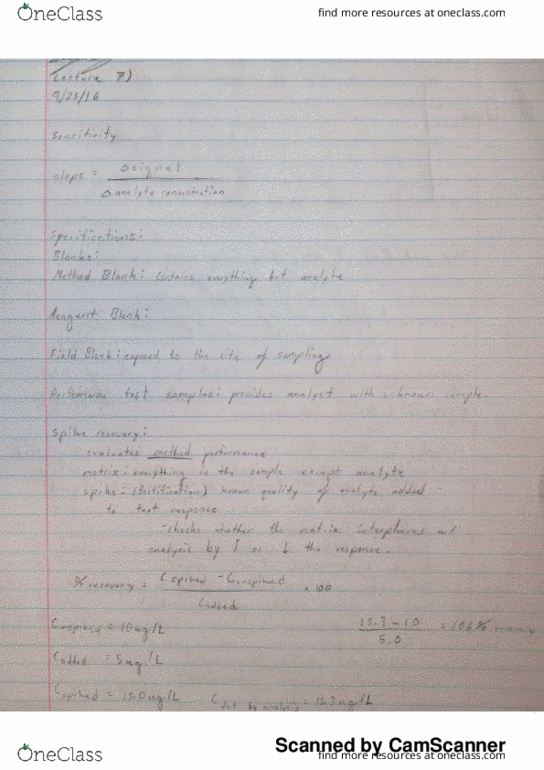 OneClass find more resources at oneclass.com
Lecture 7)
9/23/16
Sensitivity
slope = Δsignal / Δ analyte concentration
Specifications:
Blanks:
Method Blank: contains everything but analyte
Reagent Blank:
Field Blank: exposed to the site of sampling
Performance test samples: provides analyst with unknown sample.
Spike recovery:
evaluates method performance
matrix: everything in the sample except analyte
spike: (fortification) known quality of analyte added
to test response
-checks whether the matrix
analysis by ↑ or ↓ the response.
% recovery = (Cspiked - Cunspiked / Cadded) x 100
Cunspiked = 10ug/L (15.3-10 / 5.0) = 106% recovery
Cadded = 5ug/L
Cspiked = 15.0ug/L C by analysis = 15.3ug/L
Scanned by CamScanner
OneClass find more resources at oneclass.com